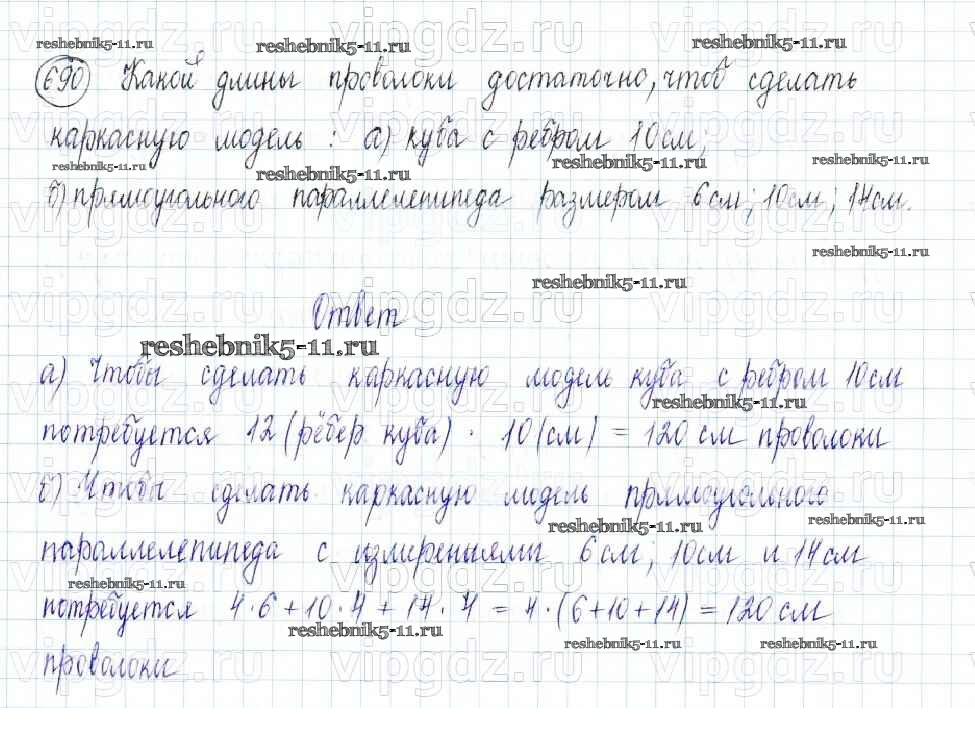 reshebnik5-11.ru reshebnik5-11.ru reshebnik5-11.ru
690 Какой длины проволоки достаточно, чтоб сделать
каркасную модель: а) куба с ребром 10 см;
reshebnik5-11.ru reshebnik5-11.ru reshebnik5-11.ru reshebnik5-11.ru
б) прямоугольного параллелепипеда размером 6 см; 10 см; 14 см.
reshebnik5-11.ru
reshebnik5-11.ru
Ответ
reshebnik5-11.ru
а) Чтобы сделать каркасную модель куба с ребром 10 см
reshebnik5-11.ru
потребуется 12 (рёбер куба) · 10 (см) = 120 см проволоки
б) Чтобы сделать каркасную модель прямоугольного
reshebnik5-11.ru reshebnik5-11.ru
параллелепипеда с измерениями 6 см; 10 см и 14 см
reshebnik5-11.ru
потребуется 4·6+10·4+14·4 = 4·(6+10+14) = 120 см
reshebnik5-11.ru reshebnik5-11.ru reshebnik5-11.ru
проволоки